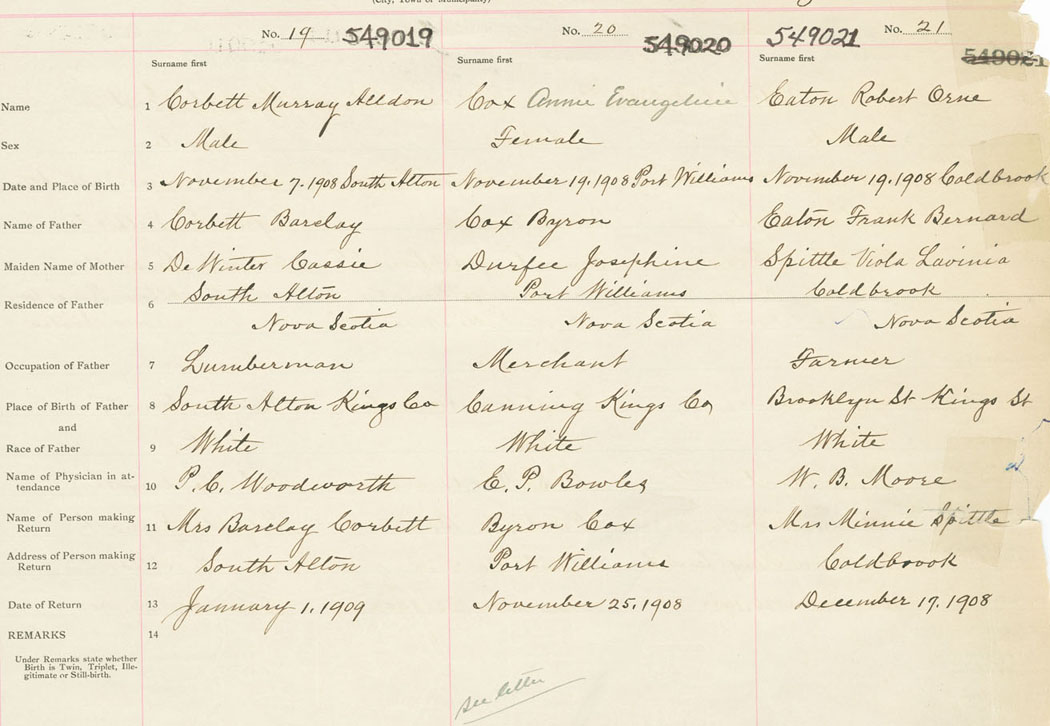 (City, Town or Municipality)
No. 19 549019 No. 20 549020 549021 No. 21
Surname first Surname first Surname first 549021
Name 1 Corbett Murray Alldon Cox Annie Evangeline Eaton Robert Orne
Sex 2 Male Female Male
Date and Place of Birth 3 November 7. 1908 South Alton November 19. 1908 Port Williams November 19. 1908 Coldbrook
Name of Father 4 Corbett Barclay Cox Byron Eaton Frank Bernard
Maiden Name of Mother 5 De Winter Cassie Durfee Josephine Spittle Viola Lavinia
Residence of Father 6 South Alton Port Williams Coldbrook
Nova Scotia Nova Scotia Nova Scotia
Occupation of Father 7 Lumberman Merchant Farmer
Place of Birth of Father 8 South Alton Kings Co Canning Kings Co Brooklyn St Kings St
and
Race of Father 9 White White White
Name of Physician in at-
tendance 10 P. C. Woodworth E. P. Bowles W. B. Moore
Name of Person making
Return 11 Mrs Barclay Corbett Byron Cox Mrs Minnie Spittle
Address of Person making
Return 12 South Alton Port Williams Coldbrook
Date of Return 13 January 1. 1909 November 25. 1908 December 17. 1908
REMARKS 14
Under Remarks state whether
Birth is Twin, Triplet, Ille-
gitimate or Still-birth.
see letter